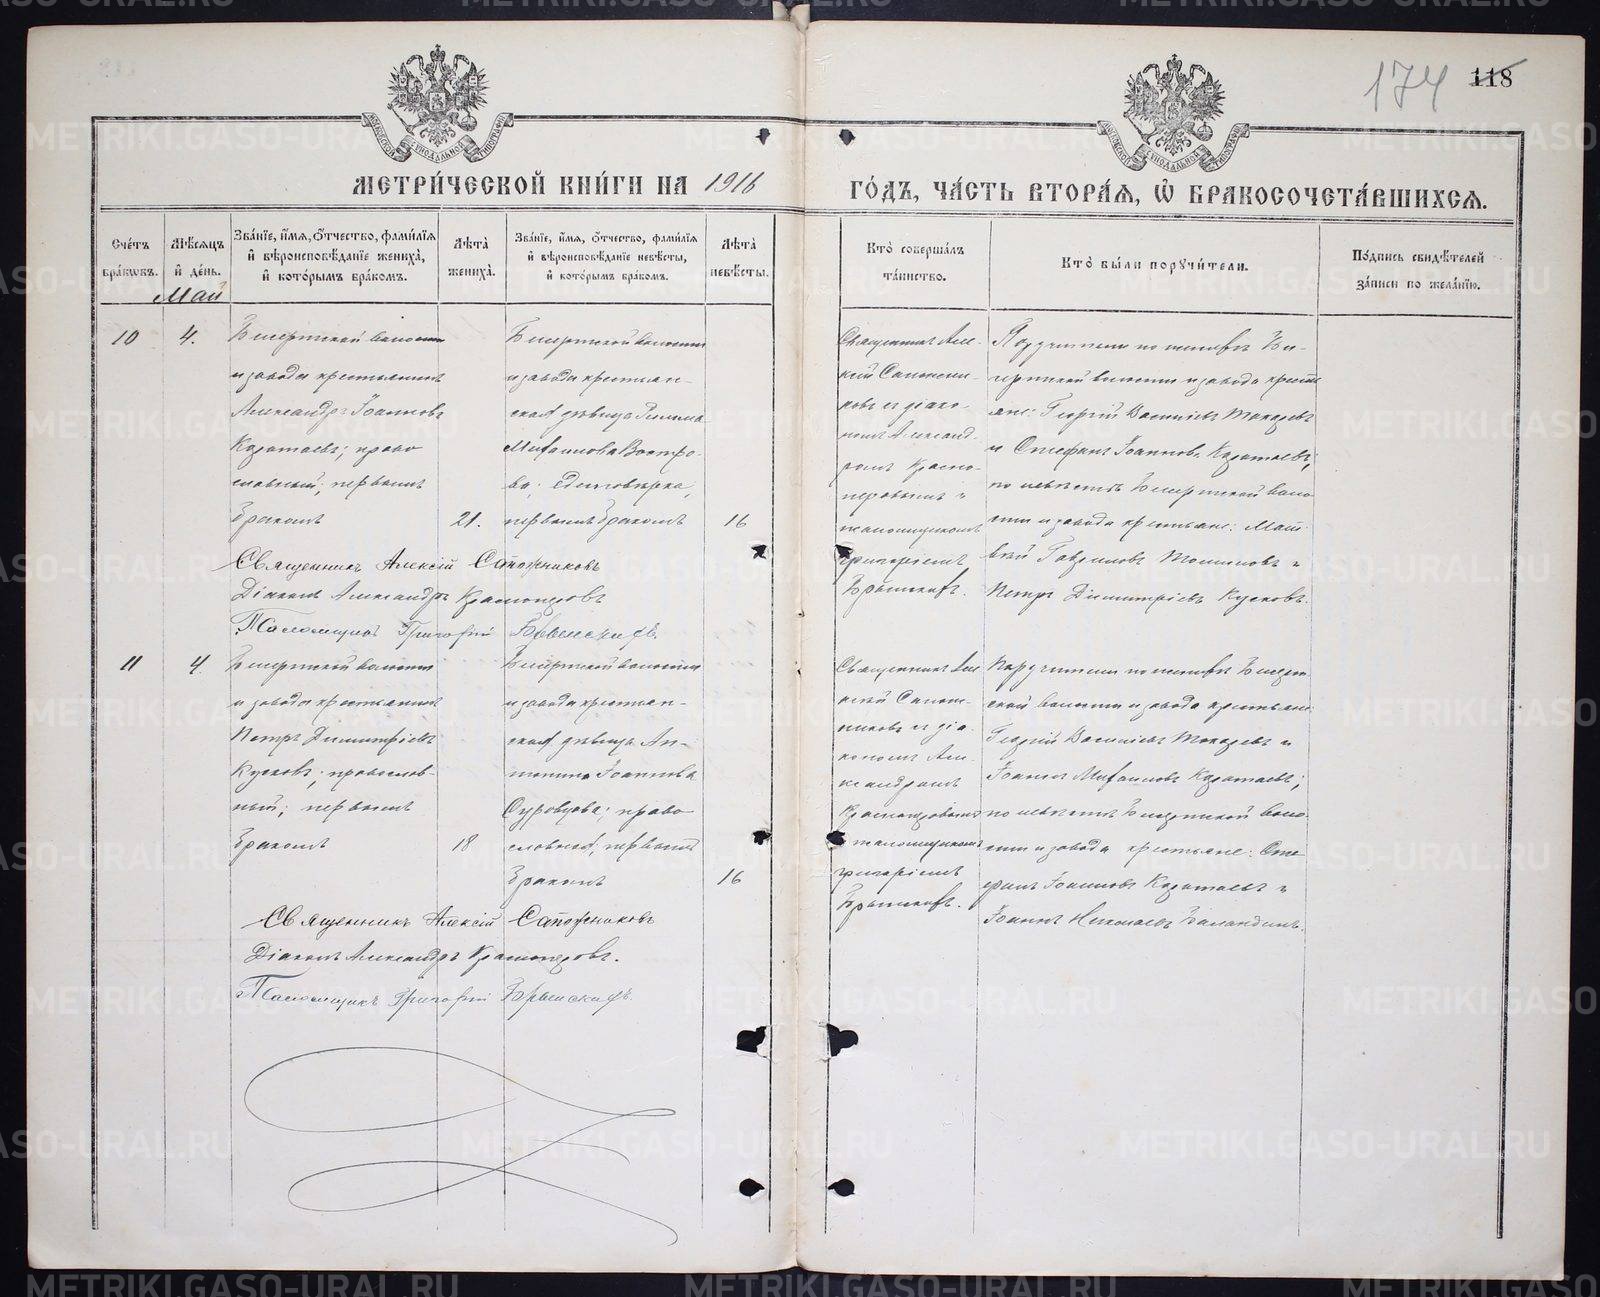 174 118
МЕТРИ́ЧЕСКОЙ КНИ́ГИ НА 1916
ГО́ДЪ, ЧА́СТЬ ВТОРА́Я, Ѡ БРАКОСОЧЕТА́ВШИХСЯ.
Сче́тъ бра́кѡвъ.
Мѣ́сяцъ и де́нь.
Зва́нїе, и́мя, о́тчество, фами́лїя и вѣроисповѣ́данїе жениха̀, и кото́рымъ бра́комъ.
Лѣ́та жениха̀.
Зва́нїе, и́мя, о́тчество, фами́лїя и вѣроисповѣ́данїе невѣ́сты, и кото́рымъ бра́комъ.
Лѣ́та невѣ́сты.
Кто̀ соверша́лъ та́инство.
Кто̀ бы́ли поручи́тели.
По́дпись свидѣ́телей за́писи по жела́нїю.
Май
10
4.
Бисертской волости
и завода крестьянинъ
Александръ Іоанновъ
Каратаевъ; право
славный; первымъ
бракомъ
21.
Бисертской волости
и завода крестьян-
ская дѣвица
Михаилова Востро-
ва; единовѣрка,
первымъ бракомъ
16
Священникъ Але
ксій Сапожни-
ковъ съ діако-
номъ Александ-
ромъ Красно-
перовымъ и
псаломщикомъ
Григоріемъ
Поручители по женихѣ Би-
сертской волости и завода кресть
яне: Георгій Василіевъ Токаревъ
и Стефанъ Іоанновъ Каратаевъ;
по невѣстѣ Бисертской воло
сти и завода крестьяне: Мат
вѣй Гавриловъ и
Петръ Димитріевъ Кусковъ.
Священникъ Алексій Сапожниковъ
Діаконъ Александръ Красноперовъ
Псаломщикъ Григорій
11
4.
Бисертской волости
и завода крестьянинъ
Петръ Димитріевъ
Кусковъ; православ-
ный; первымъ
бракомъ
18
Бисертской волости
и завода крестьян-
ская дѣвица Ан-
тонина Іоаннова
Суровцова; право
славная, первымъ
бракомъ
16
Священникъ Але
ксій Сапож-
никовъ съ діа
кономъ Але-
ксандромъ
Красноперовымъ
псаломщикомъ
Григоріемъ
Поручители по женихѣ Бисерт
ской волости и завода крестьяне:
Георгій Василіевъ Токаревъ и
Іоаннъ Михаиловъ Каратаевъ;
по невѣстѣ Бисертской воло
сти и завода крестьяне: Сте
фанъ Іоанновъ Каратаевъ и
Іоаннъ Николаевъ Баландинъ.
Священникъ Алексій Сапожниковъ
Діаконъ Александръ Красноперовъ.
Псаломщикъ Григорій
METRIKI.GASO-URAL.RU